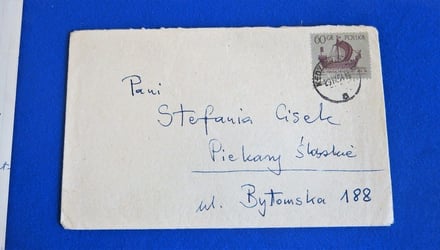 60 GR POLSKA
Pani
Stefania Cisek
Piekary Śląskie
ul. Bytomska 188